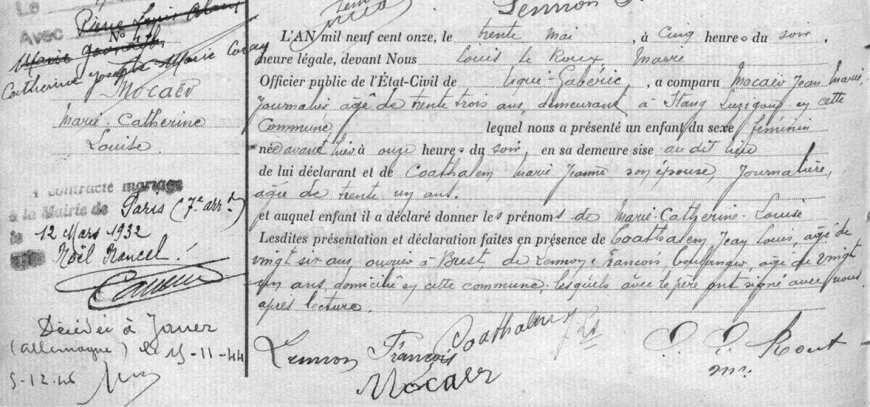 Le
Avec Pierre Louis
N° 47
Marie
Catherine Josephe Marie Coray
Mocaër
Marie-Catherine
Louise
a contracté mariage
à la Mairie de Paris (7e arrt)
le 12 Mars 1932
Noël Rancel
Décédée à Janer
(Allemagne) le 15-11-44
5-12-46
Lennon
L'AN mil neuf cent onze, le trente mai, à cinq heures du soir,
heure légale, devant Nous Louis Le Roux Maire
Officier public de l'État-Civil de Ergué-Gabéric, a comparu Mocaër Jean Marie,
Journalier âgé de trente trois ans, demeurant à Stang Luzigou en cette
Commune, lequel nous a présenté un enfant du sexe féminin
née avant hier à onze heures du soir, en sa demeure sise au dit lieu
de lui déclarant et de Coathalem Marie Jeanne son épouse, Journalière,
agée de trente un ans.
et auquel enfant il a déclaré donner les prénoms de Marie-Catherine-Louise
Lesdites présentation et déclaration faites en présence de Coathalem Jean Louis, agé de
vingt six ans, ouvrier à Brest, de Lennon François, boulanger, agé de vingt
un ans, domicilié en cette commune, lesquels avec le père ont signé avec nous
après lecture.
Lennon François Coathalem J Ls
Mocaër